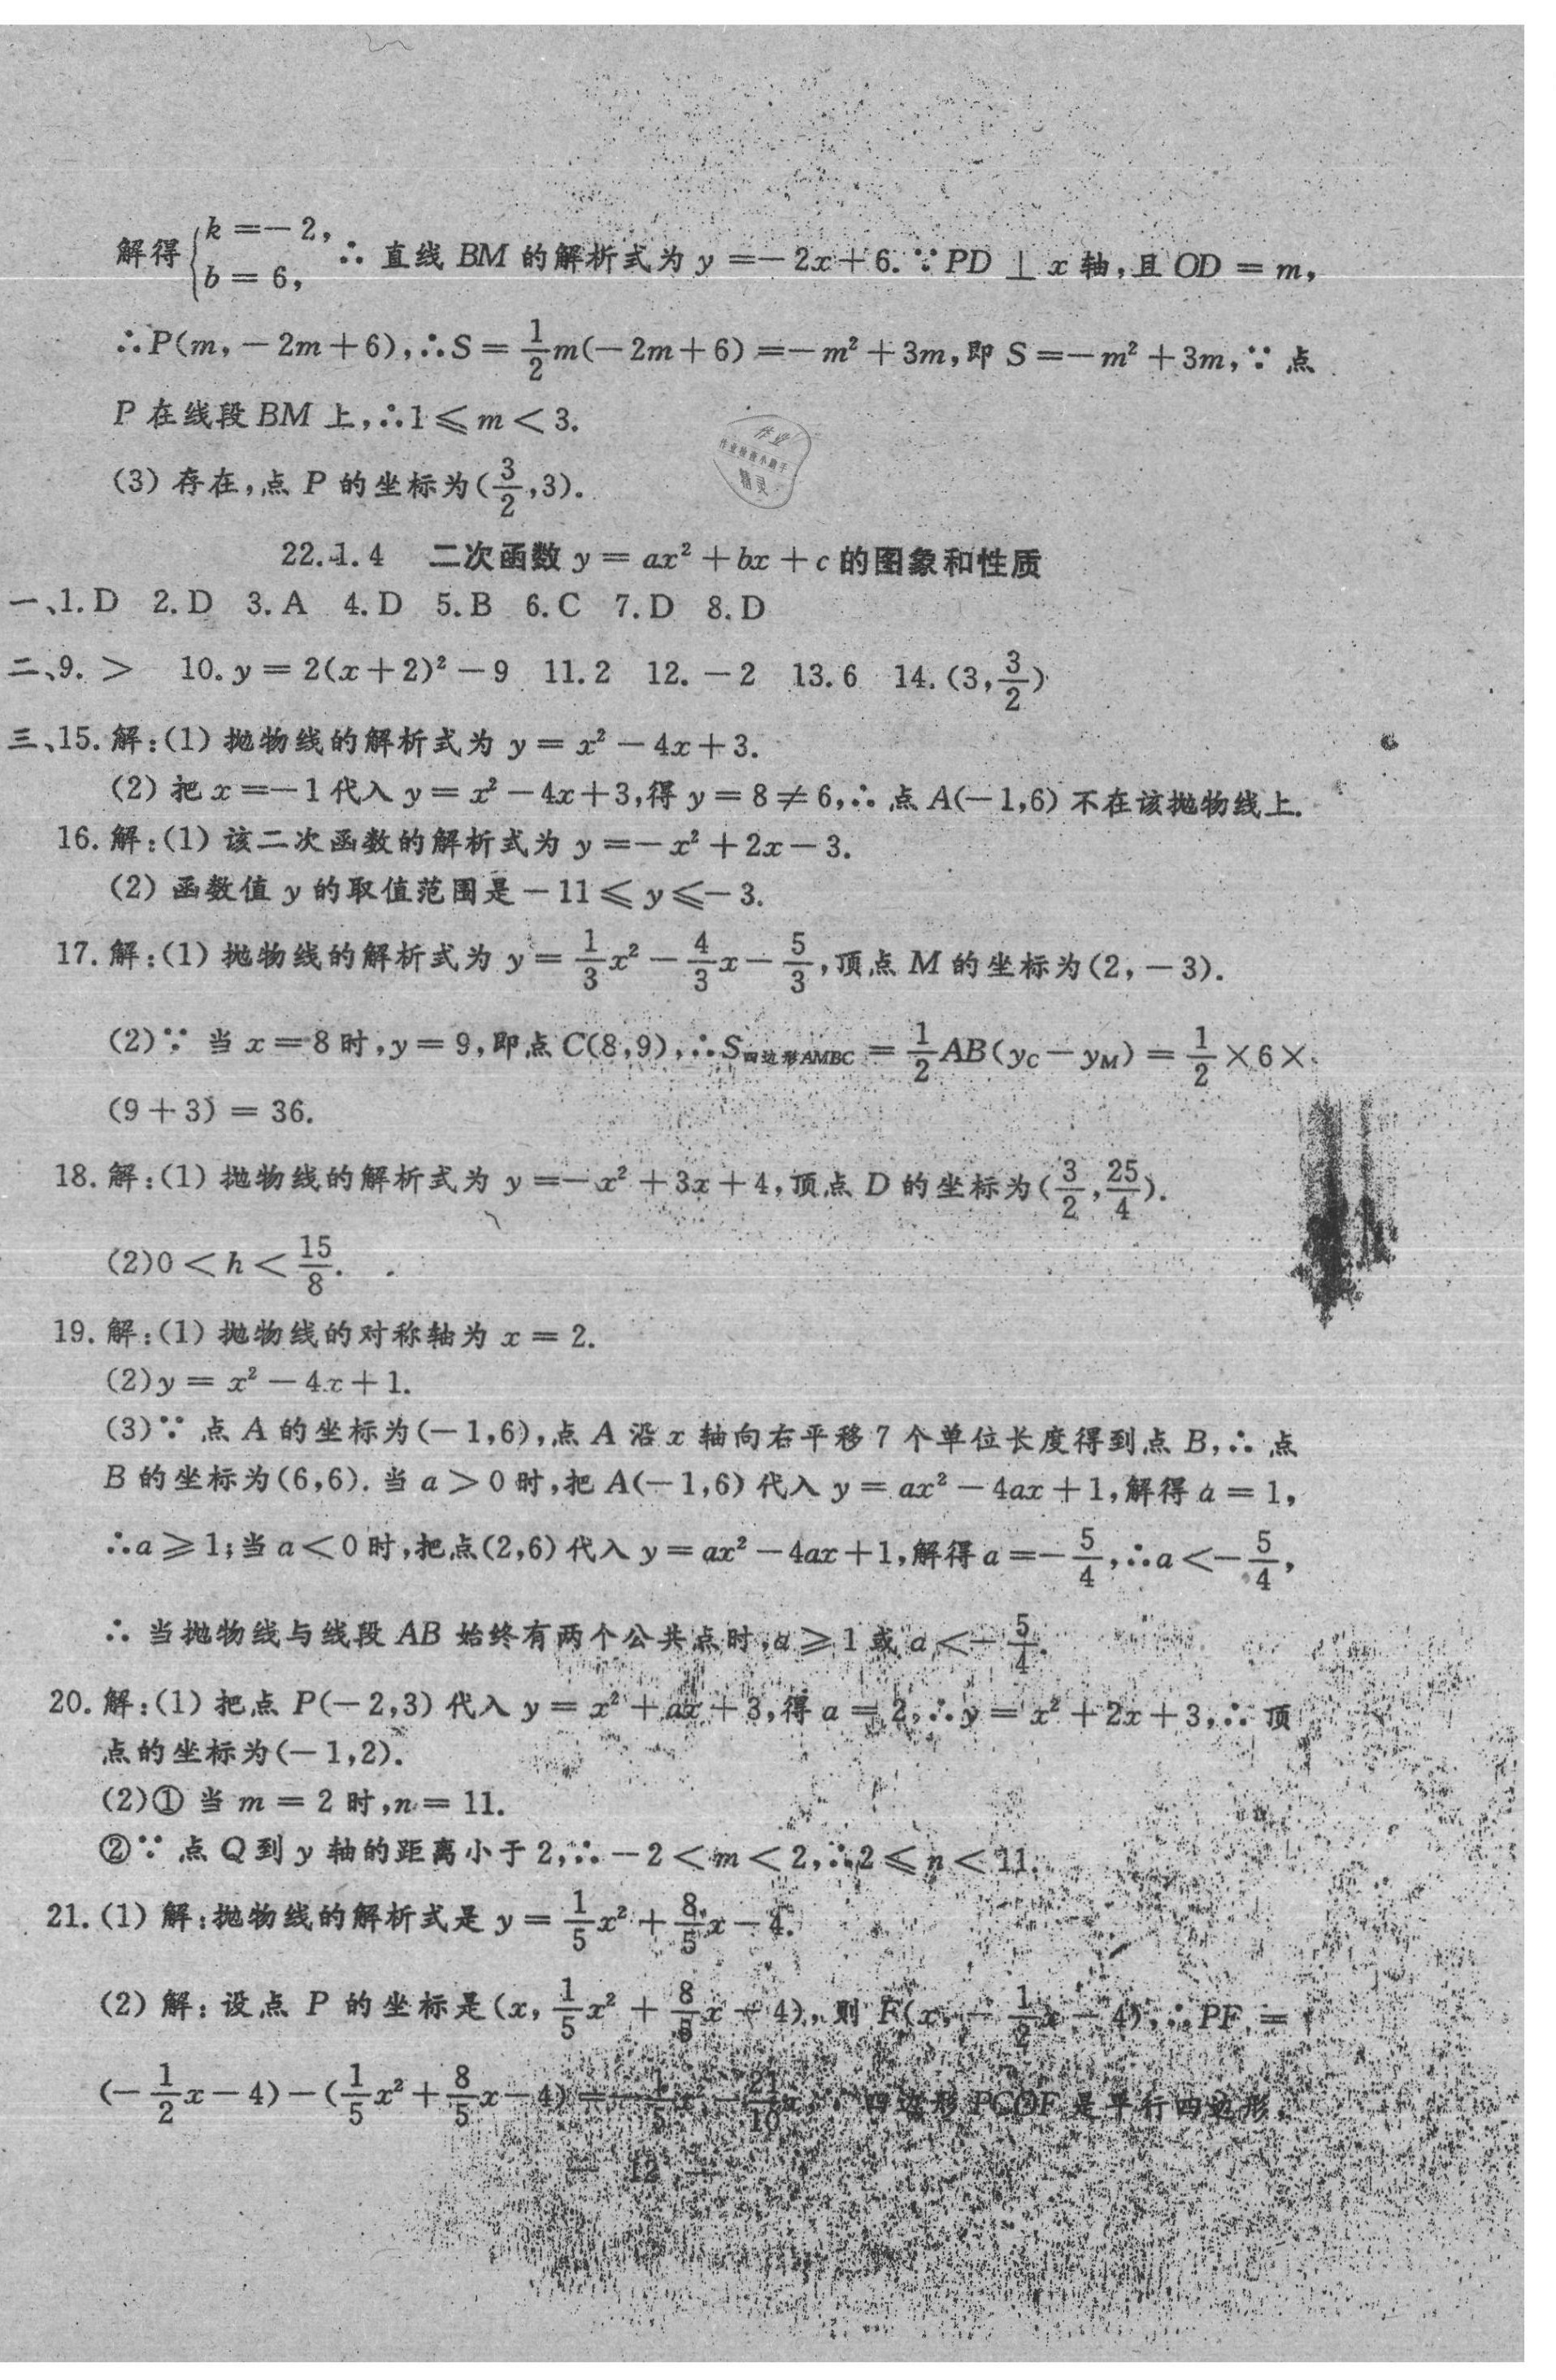 解得{k=-2, b=6, ∴直线BM的解析式为y=-2x+6.∵PD⊥x轴,且OD=m,
∴P(m,-2m+6),∴S=1/2m(-2m+6)=-m²+3m,即S=-m²+3m,∵点
P在线段BM上,∴1≤m<3.
(3)存在,点P的坐标为(3/2,3).
作业
精灵
22.1.4 二次函数y=ax²+bx+c的图象和性质
一、1.D 2.D 3.A 4.D 5.B 6.C 7.D 8.D
二、9.> 10.y=2(x+2)²-9 11.2 12.-2 13.6 14.(3,3/2)
三、15.解:(1)抛物线的解析式为y=x²-4x+3.
(2)把x=-1代入y=x²-4x+3,得y=8≠6,∴点A(-1,6)不在该抛物线上.
16.解:(1)该二次函数的解析式为y=-x²+2x-3.
(2)函数值y的取值范围是-11≤y≤-3.
17.解:(1)抛物线的解析式为y=1/3x²-4/3x-5/3,顶点M的坐标为(2,-3).
(2)∵当x=8时,y=9,即点C(8,9),∴S四边形AMBC=1/2AB(yC-yM)=1/2×6×
(9+3)=36.
18.解:(1)抛物线的解析式为y=-x²+3x+4,顶点D的坐标为(3/2,25/4).
(2)0<h<15/8.
19.解:(1)抛物线的对称轴为x=2.
(2)y=x²-4x+1.
(3)∵点A的坐标为(-1,6),点A沿x轴向右平移7个单位长度得到点B,∴点
B的坐标为(6,6).当a>0时,把A(-1,6)代入y=ax²-4ax+1,解得a=1,
∴a≥1;当a<0时,把点(2,6)代入y=ax²-4ax+1,解得a=-5/4,∴a<-5/4,
∴当抛物线与线段AB始终有两个公共点时,a≥1或a<-5/4.
20.解:(1)把点P(-2,3)代入y=x²+ax+3,得a=2,∴y=x²+2x+3,∴顶
点的坐标为(-1,2).
(2)①当m=2时,n=11.
②∵点Q到y轴的距离小于2,∴-2<m<2,∴2≤n<11.
21.(1)解:抛物线的解析式是y=1/5x²+8/5x-4.
(2)解:设点P的坐标是(x,1/5x²+8/5x-4),则F(x,-1/2x-4),∴PF=
(-1/2x-4)-(1/5x²+8/5x-4)=-1/5x²-21/10x,∵四边形PCOF是平行四边形,
— 12 —